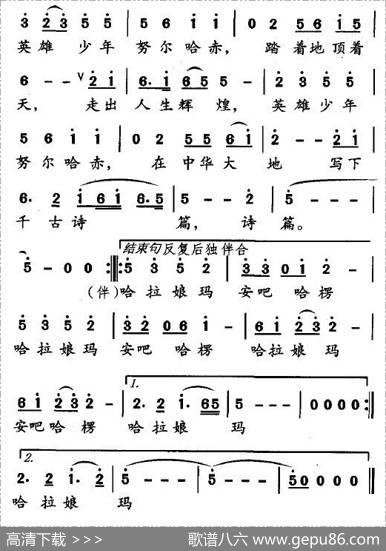 3 2 3 5 5 | 5 6 1 1 | 0 2 5 6 1 5
英雄 少年 努尔哈赤, 踏着地顶着
6 - - 2 1 | 6. 1 6 5 5 - | 2 3 5 5
天, 走出 人生辉 煌, 英雄少年
5 6 1 1 | 0 2 5 5 6 1 | 2 - - 2 1
努尔哈赤, 在中华大 地 写下
6. 2 1 6 1 6. 5 | 5 - - 2 | 5 - - - |
千古诗 篇, 诗篇。
结束句反复后独伴合
5 - 0 0 :‖: 5 3 5 2 | 3 3 0 1 2 - |
(伴)哈拉娘玛 安吧哈楞
5 3 5 2 | 3 2 0 6 1 - | 6 1 2 3 2 - |
哈拉娘玛 安吧哈楞 哈拉娘玛
1.
6 1 2 3 2 - | 2. 2 1. 6 5 | 5 - - - | 0 0 0 0 :‖
安吧哈楞 哈拉娘 玛
2.
2. 2 1. 2 | 5 - - - | 5 - - - | 5 0 0 0 0 ‖
哈拉娘 玛
高清下载 >>> 歌谱八六 www.gepu86.com